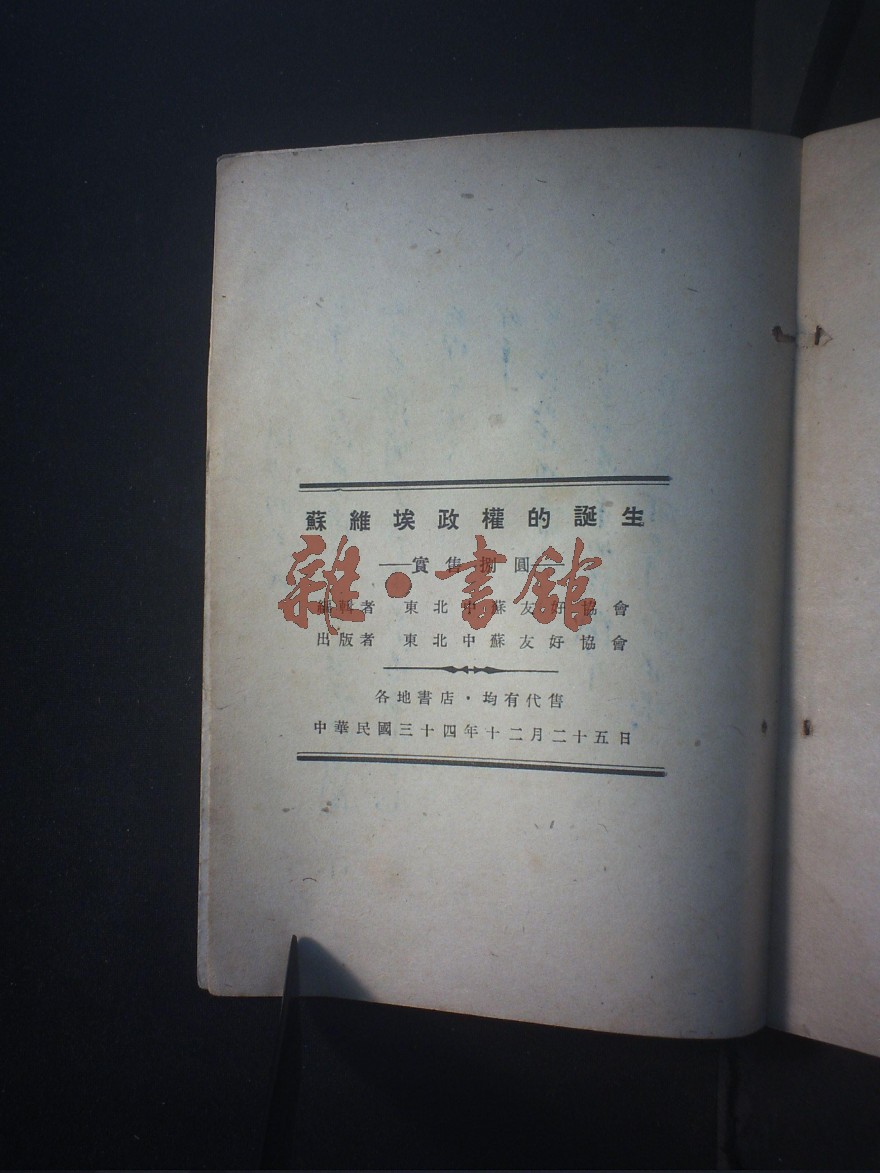 蘇維埃政權的誕生
—實售捌圓—
雜·書館
編輯者 東北中蘇友好協會
出版者 東北中蘇友好協會
各地書店·均有代售
中華民國三十四年十二月二十五日